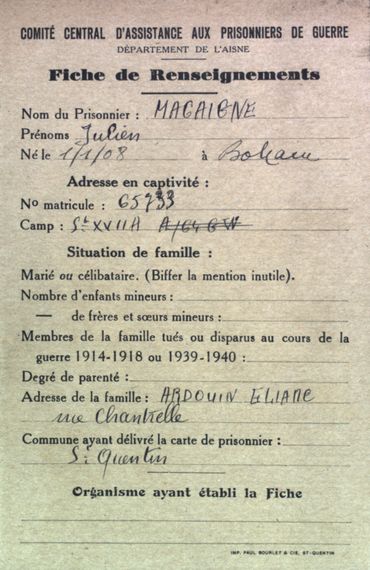 COMITÉ CENTRAL D'ASSISTANCE AUX PRISONNIERS DE GUERRE
DÉPARTEMENT DE L'AISNE
Fiche de Renseignements
Nom du Prisonnier : MACAIGNE
Prénoms Julien
Né le 1/1/08 à Bohain
Adresse en captivité :
No matricule : 65733
Camp : St XVIIA
Situation de famille :
Marié ou célibataire. (Biffer la mention inutile).
Nombre d'enfants mineurs :
— de frères et sœurs mineurs :
Membres de la famille tués ou disparus au cours de la
guerre 1914-1918 ou 1939-1940 :
Degré de parenté :
Adresse de la famille : ARDOUIN ELIANE
rue Chantrelle
Commune ayant délivré la carte de prisonnier :
St Quentin
Organisme ayant établi la Fiche
IMP. PAUL BOURLET & CIE, ST-QUENTIN